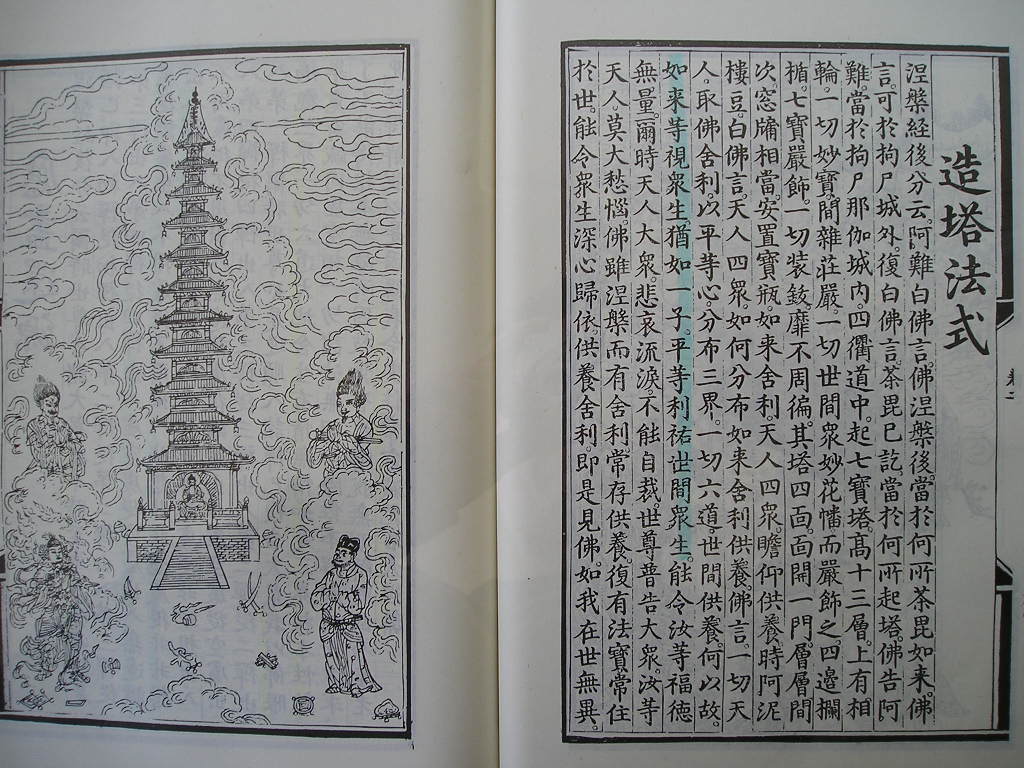 造塔法式
涅槃經後分云。阿難白佛言。佛涅槃後。當於何所茶毘如來。佛
言。可於拘尸城外。復白佛言。茶毘已訖。當於何所起塔。佛告阿
難。當於拘尸那伽城內。四衢道中。起七寶塔。高十三層。上有相
輪。一切妙寶。間雜莊嚴。一切世間眾妙花幡而嚴飾之。四邊欄
楯。七寶嚴飾。一切裝鉸靡不周徧。其塔四面。面開一門。層層間
次。窓牗相當。安置寶瓶。如來舍利。天人四眾。瞻仰供養。時阿泥
樓豆。白佛言。天人四眾。如何分布如來舍利供養。佛言。一切天
人。取佛舍利。以平等心。分布三界。一切六道。世間供養。何以故。
如來等視眾生。猶如一子。平等利祐世間眾生。能令汝等福德
無量。爾時天人大眾。悲哀流淚。不能自裁。世尊普告大眾。汝等
天人莫大愁惱。佛雖涅槃而有舍利常存供養。復有法寶常住
於世。能令眾生深心歸依。供養舍利。即是見佛。如我在世無異。
卷上